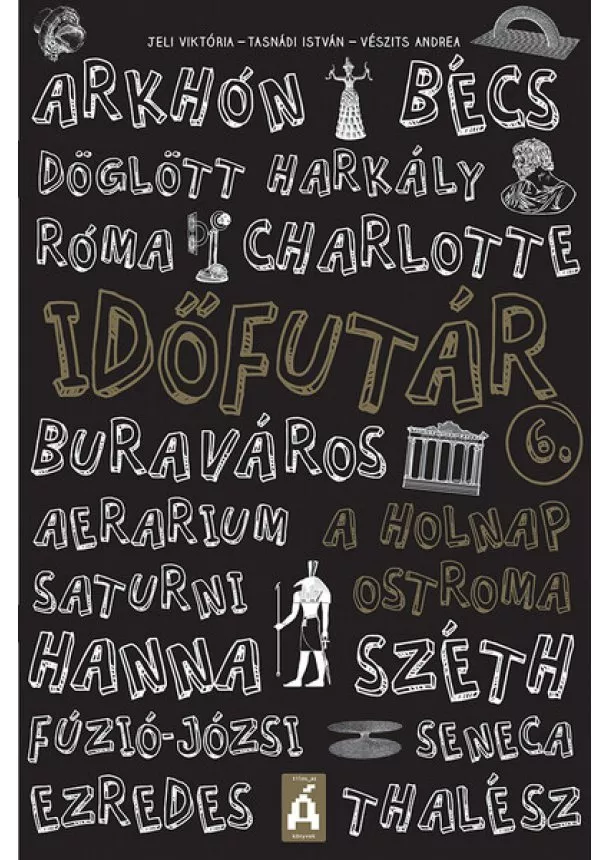 JELI VIKTÓRIA – TASNÁDI ISTVÁN – VÉSZITS ANDREA
ARKHÓN BÉCS
DÖGLÖTT HARKÁLY
RÓMA CHARLOTTE
IDŐFUTÁR
BURAVÁROS 6.
AERARIUM A HOLNAP
SATURNI OSTROMA
HANNA SZÉTH
FÚZIÓ-JÓZSI SENECA
EZREDES THALÉSZ
tilos_az
Á
könyvek